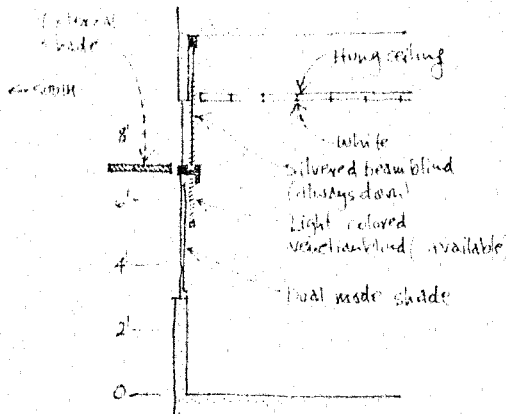 External
shade
Hung ceiling
south
8'
White
silvered beam blind
(always down)
6'
Light colored
venetian blind (available)
4'
Dual mode shade
2'
0